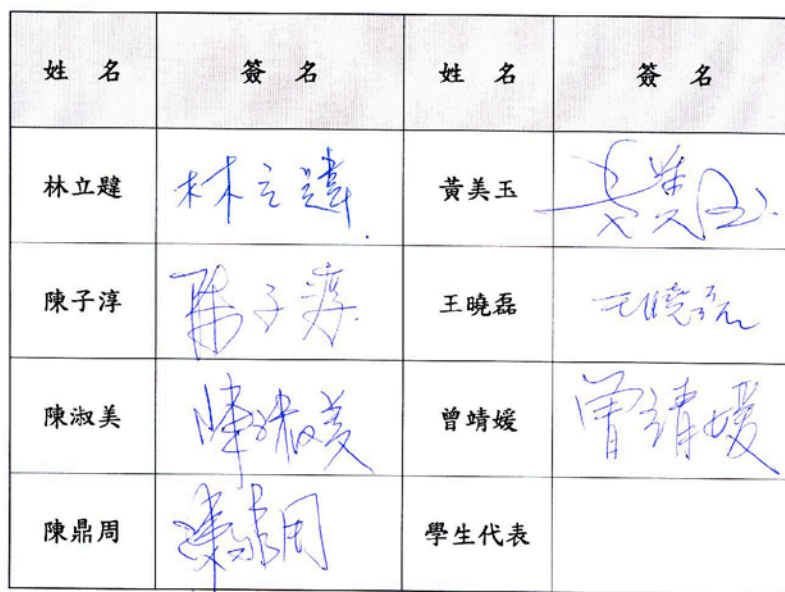 姓 名 簽 名 姓 名 簽 名
林立韙 林立韙 黃美玉 黃美玉
陳子淳 陳子淳 王曉磊 王曉磊
陳淑美 陳淑美 曾靖媛 曾靖媛
陳鼎周 陳鼎周 學生代表